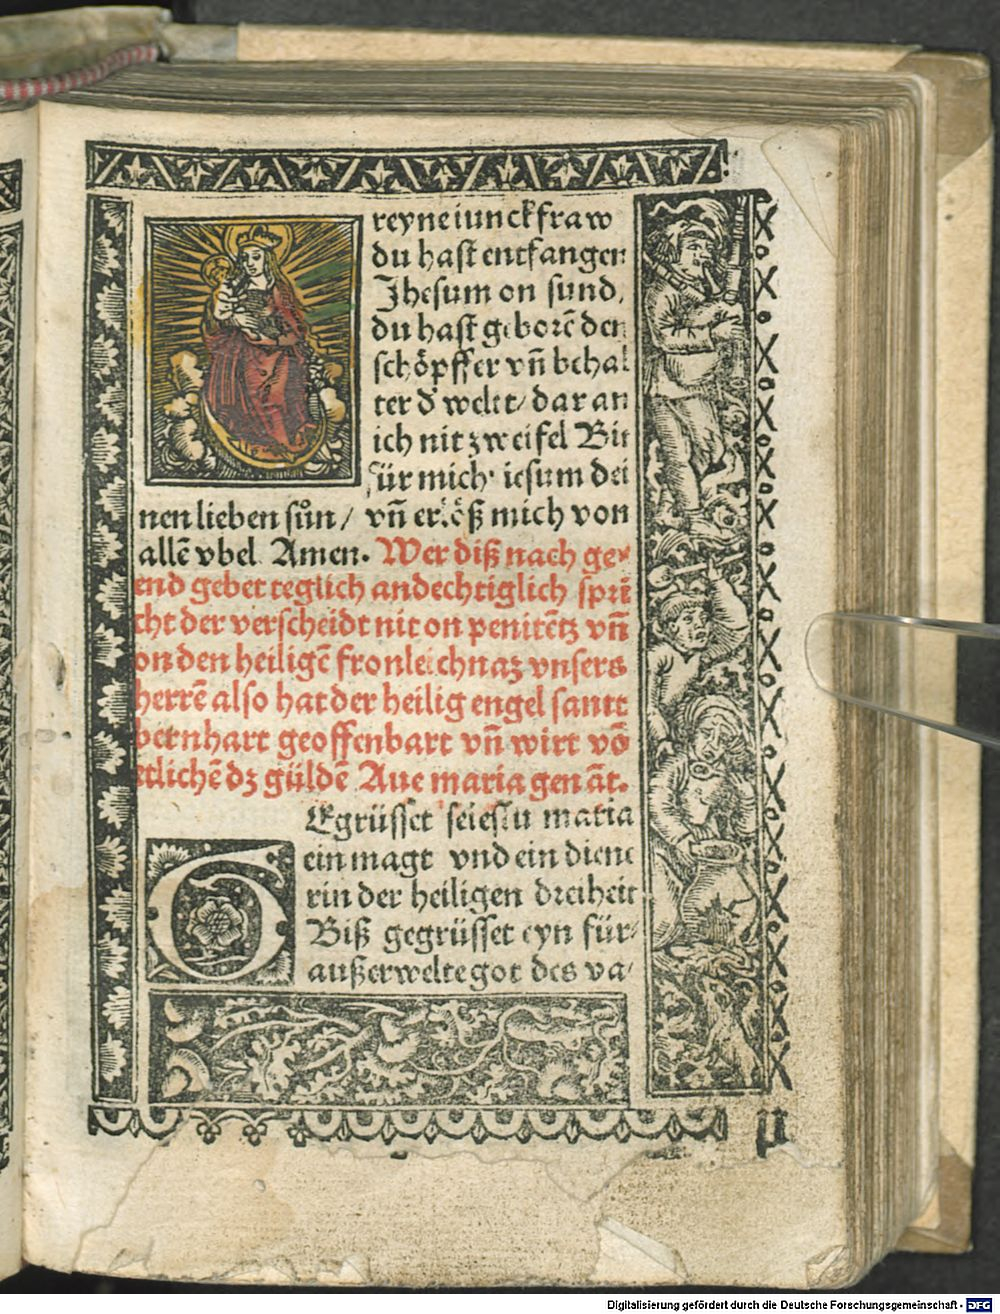 reyne iunckfraw
du hast entfangen
Jhesum on sund,
du hast geborē den
schöpffer vn̄ behal
ter d̕ welt / dar an
ich nit zweifel Bit
für mich iesum dei
nen lieben sůn / vn̄ erlöß mich von
allē vbel Amen. Wer diß nach ge⸗
end gebet teglich andechtiglich spri
cht der verscheidt nit on penitētz vn̄
on den heiligē fronleichnaz vnsers
herrē also hat der heilig engel sant
bernhart geoffenbart vn̄ wirt vō
etlichē dz güldē Aue maria genāt.
G Egrüsset seiestu maria
ein magt vnd ein diene
rin der heiligen dreiheit
Biß gegrüsset eyn für⸗
außerwelte got des va⸗
Digitalisierung gefördert durch die Deutsche Forschungsgemeinschaft - DFG